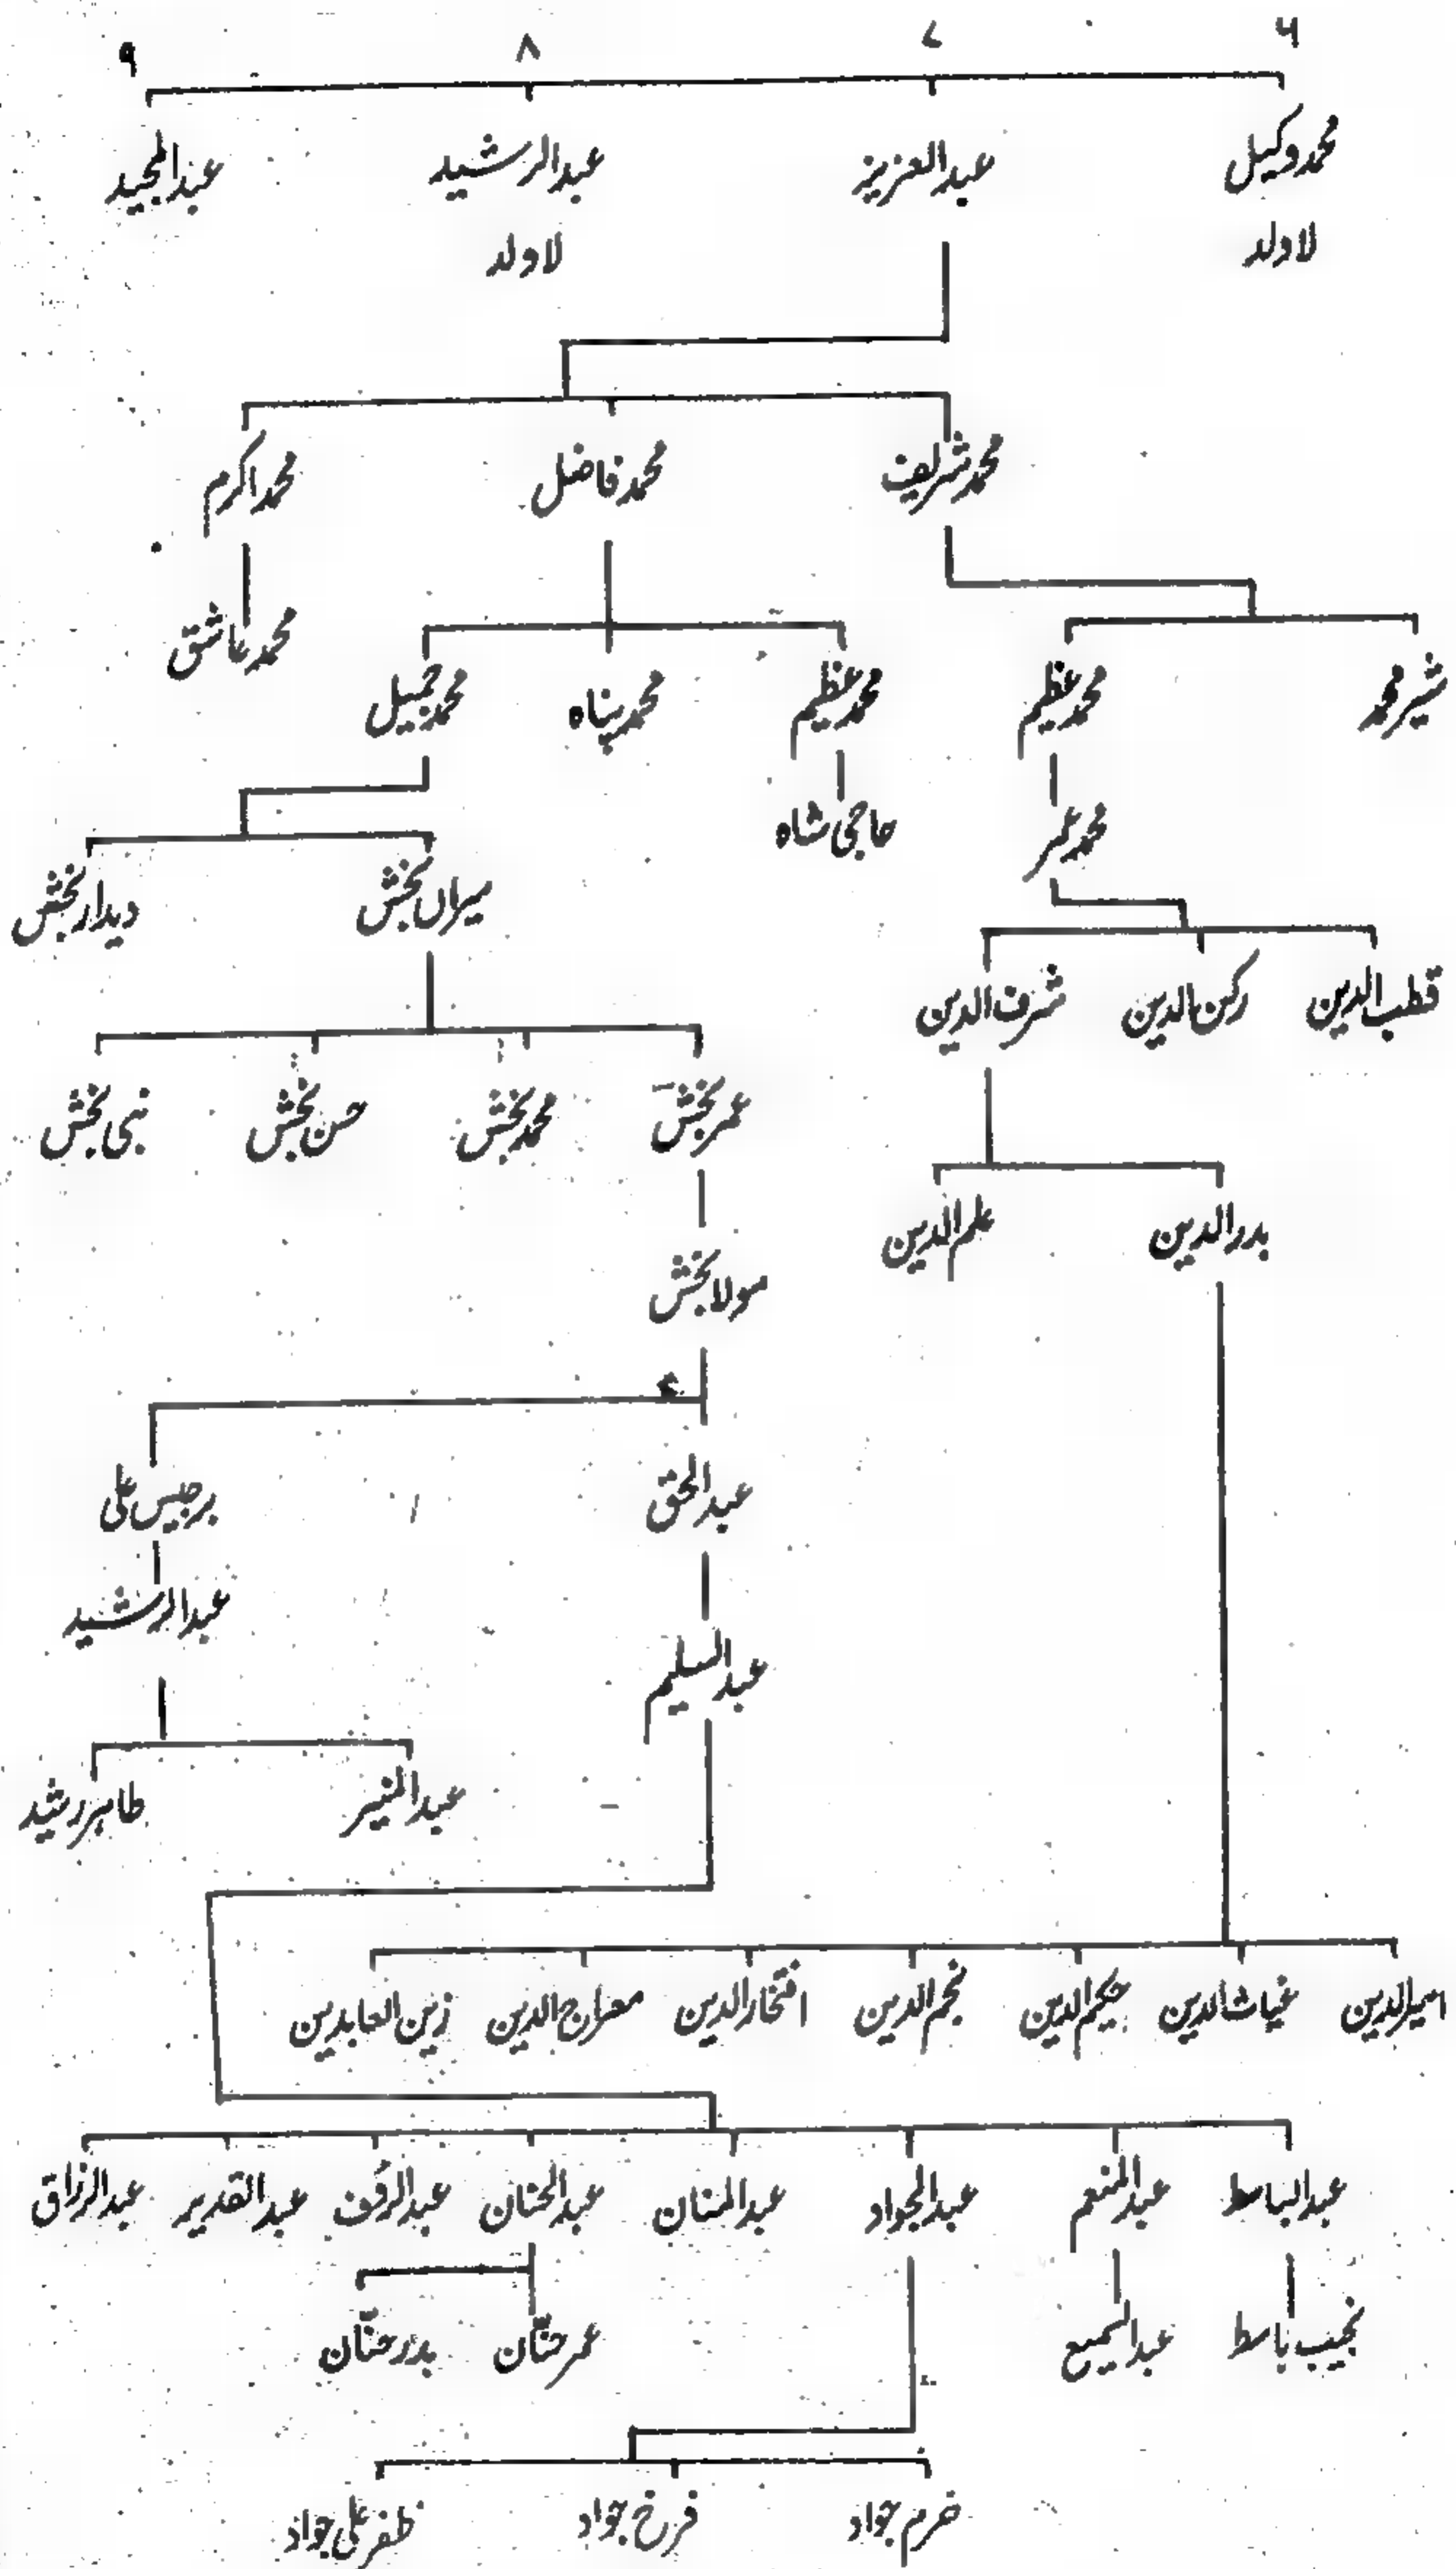 ۶ ۷ ۸ ۹
محمد وکیل عبدالعزیز عبدالرشید عبدالمجید
لاولد لاولد
محمد شریف محمد فاضل محمد اکرم
محمد عاشق
شیر محمد محمد عظیم محمد عظیم محمد پناہ محمد جمیل
محمد عمر حاجی شاہ
میراں بخش دیدار بخش
قطب الدین رکن الدین شرف الدین
عمر بخش محمد بخش حسن بخش نبی بخش
بدرالدین علم الدین
مولا بخش
عبدالحق برجیس علی
عبدالرشید
عبدالسلیم
عبدالمنیر طاہر رشید
امیرالدین غیاث الدین حکیم الدین نجم الدین افتخار الدین معراج الدین زین العابدین
عبدالباسط عبدالمنعم عبدالجواد عبدالمنان عبدالحنان عبدالرؤف عبدالقدیر عبدالرزاق
نجیب باسط عبدالسمیع عمر حنّان بدر حنّان
خرم جواد فرخ جواد ظفر علی جواد